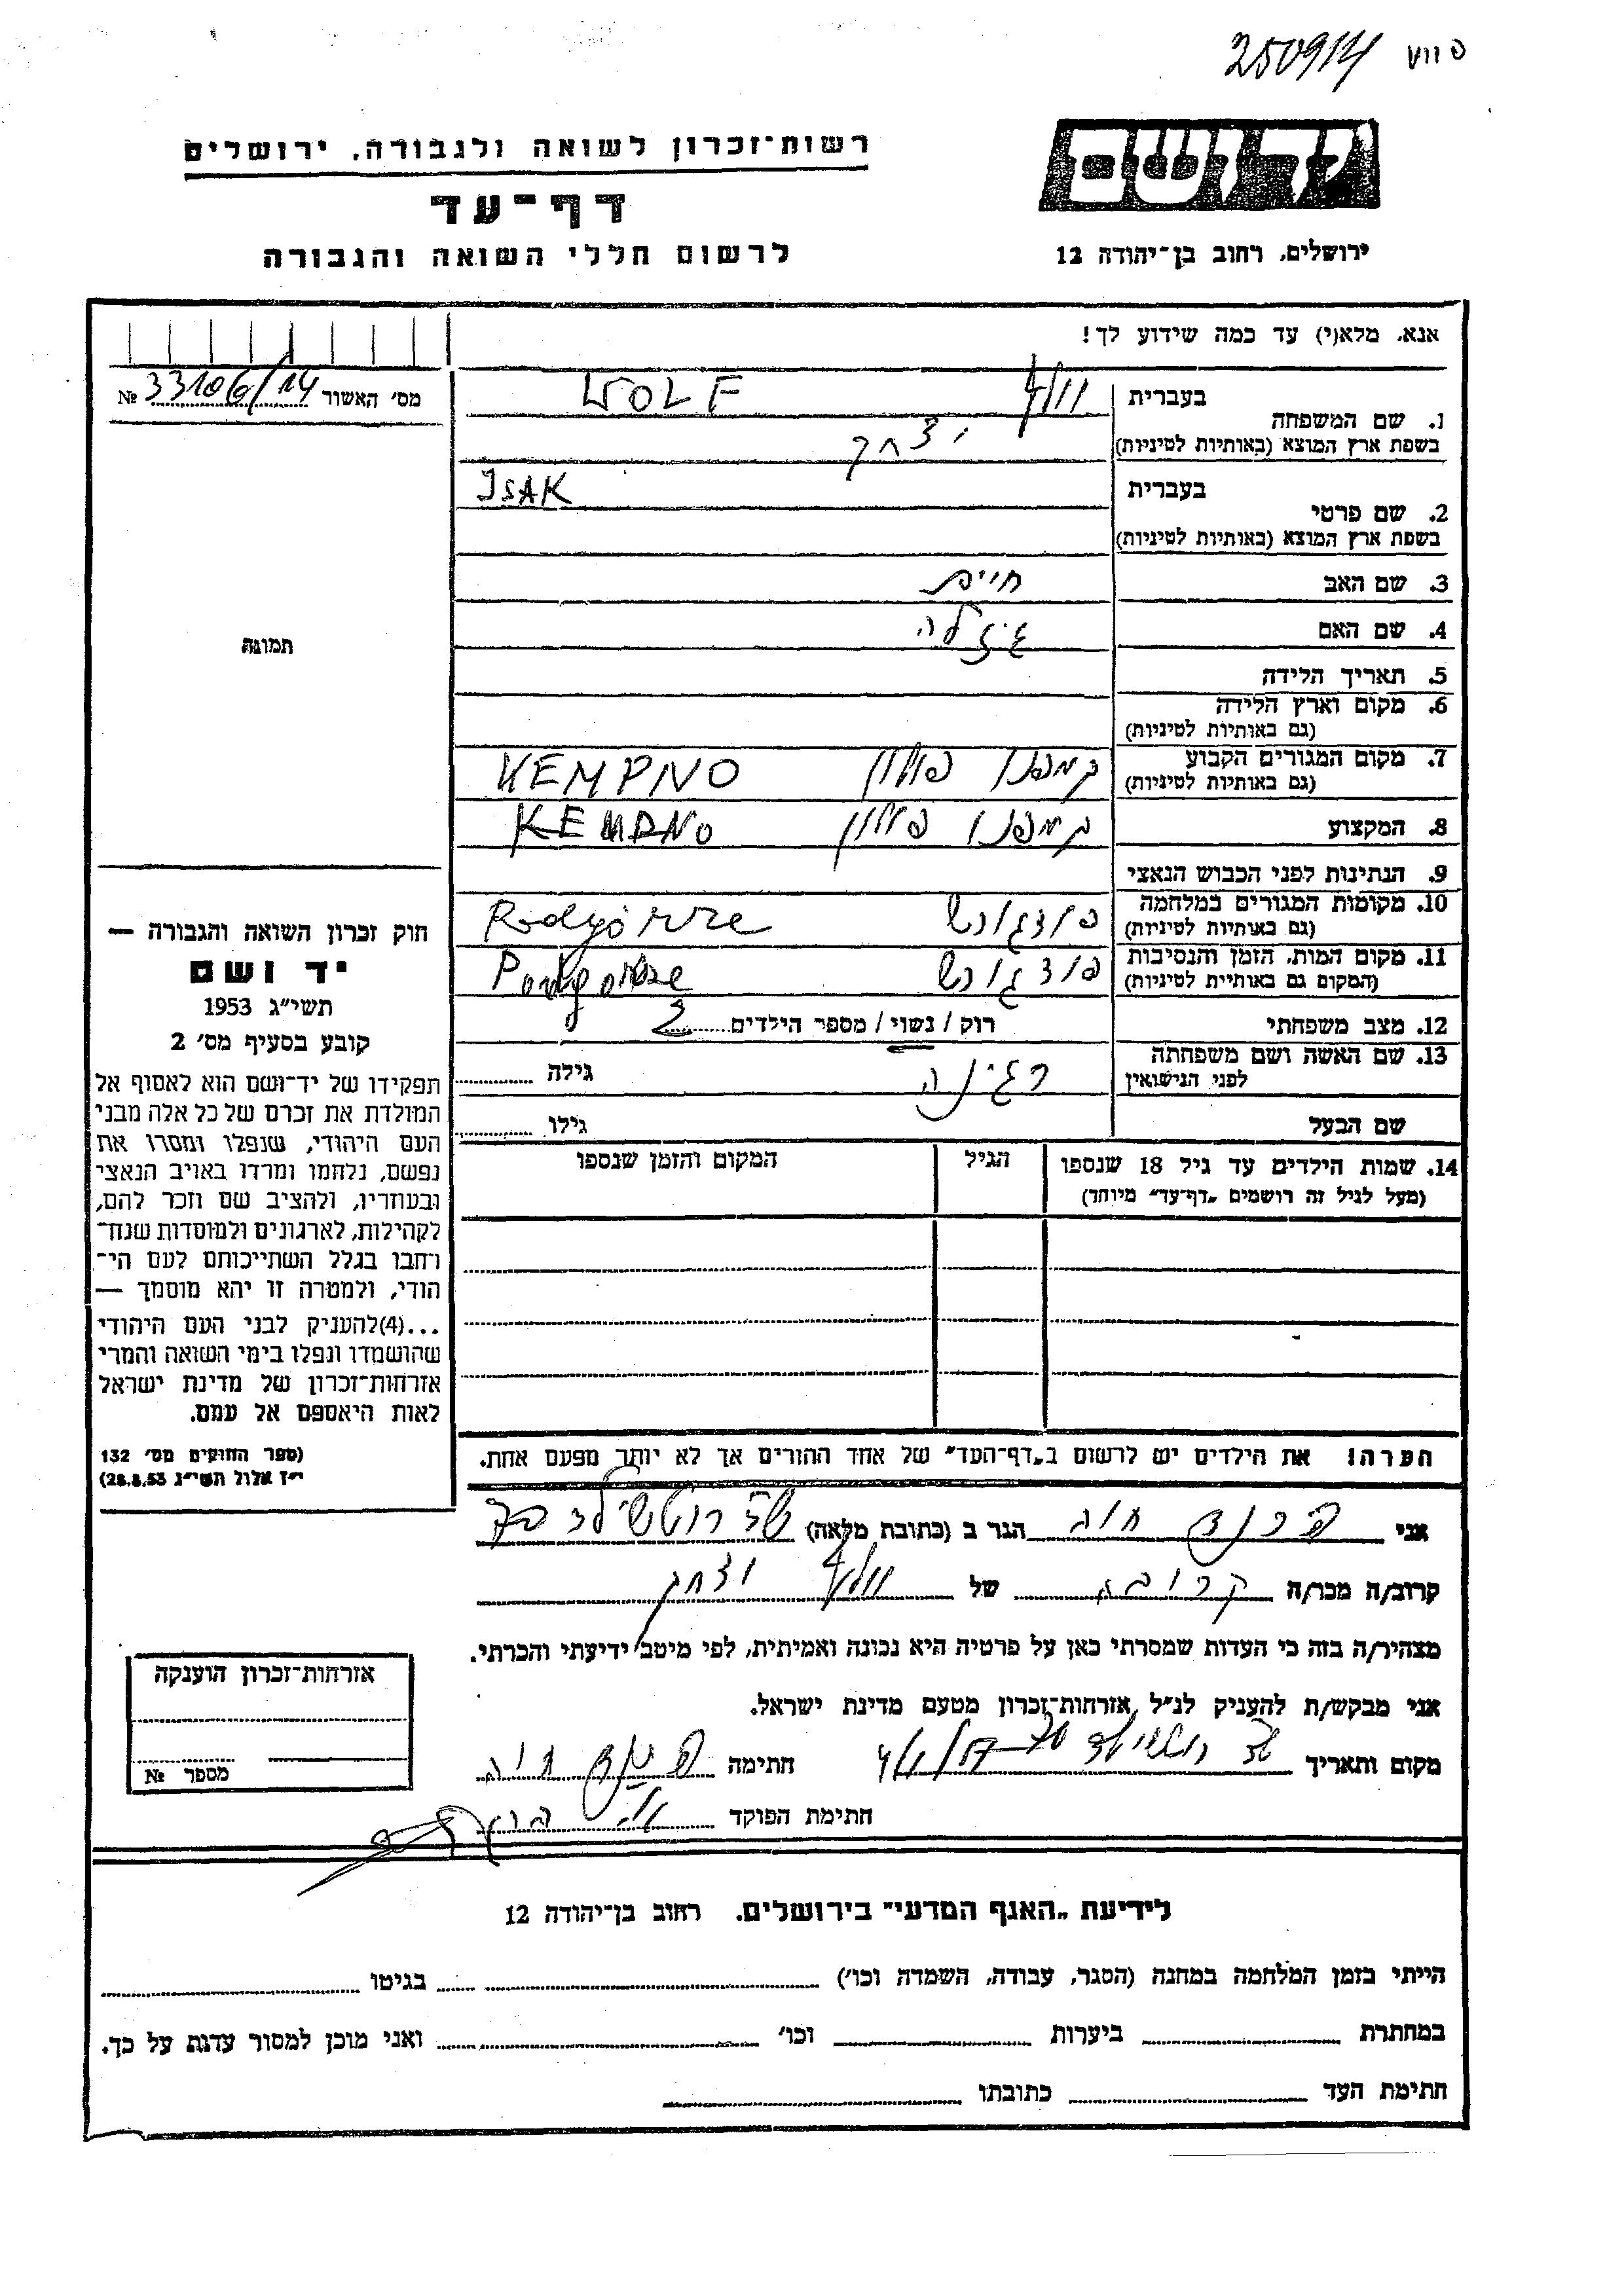 250914
ידושם
רשות־זכרון לשואה ולגבורה, ירושלים
דף־עד
לרשום חללי השואה והגבורה
ירושלים, רחוב בן־יהודה 12
אנא, מלא(י) עד כמה שידוע לך!
מס׳ האשור 33106/14 №
1. שם המשפחה בעברית WOLF
בשפת ארץ המוצא (באותיות לטיניות) יצחק
2. שם פרטי בעברית ISAK
בשפת ארץ המוצא (באותיות לטיניות)
3. שם האב חיים
4. שם האם גיזלה
5. תאריך הלידה
6. מקום וארץ הלידה
(גם באותיות לטיניות)
7. מקום המגורים הקבוע קמפנו פולין KEMPNO
(גם באותיות לטיניות)
8. המקצוע קמפנו פולין KEMPNO
9. הנתינות לפני הכבוש הנאצי
10. מקומות המגורים במלחמה Podgórze
(גם באותיות לטיניות)
11. מקום המות, הזמן והנסיבות Podgorze
(המקום גם באותיית לטיניות)
12. מצב משפחתי רוק / נשוי / מספר הילדים 2
13. שם האשה ושם משפחתה רגינה גילה
לפני הנישואין
שם הבעל גילו
14. שמות הילדים עד גיל 18 שנספו הגיל המקום והזמן שנספו
(מעל לגיל זה רושמים „דף־עד״ מיוחד)
תמונה
חוק זכרון השואה והגבורה —
יד ושם
תשי״ג 1953
קובע בסעיף מס׳ 2
תפקידו של יד־ושם הוא לאסוף אל
המולדת את זכרם של כל אלה מבני
העם היהודי, שנפלו ומסרו את
נפשם, נלחמו ומרדו באויב הנאצי
ובעוזריו, ולהציב שם וזכר להם,
לקהילות, לארגונים ולמוסדות שנח־
רחבו בגלל השתייכותם לעם הי־
הודי, ולמטרה זו יהא מוסמך —
...(4)להעניק לבני העם היהודי
שהושמדו ונפלו בימי השואה והמרי
אזרחות־זכרון של מדינת ישראל
לאות היאספם אל עמם.
(ספר החוקים מס׳ 132
י״ז אלול תשי״ג 28.8.53)
הערה! את הילדים יש לרשום ב„דף־העד״ של אחד ההורים אך לא יותר מפעם אחת.
אני חוה הגר ב (כתובת מלאה) שד רוטשילד
קרוב/ה מכר/ה קרובה של וולף יצחק
מצהיר/ה בזה כי העדות שמסרתי כאן על פרטיה היא נכונה ואמיתית, לפי מיטב ידיעתי והכרתי.
אני מבקש/ת להעניק לנ״ל אזרחות־זכרון מטעם מדינת ישראל.
מקום ותאריך שד רוטשילד חתימה חוה
חתימת הפוקד
אזרחות־זכרון הוענקה
מספר №
לידיעת „האגף המדעי״ בירושלים. רחוב בן־יהודה 12
הייתי בזמן המלחמה במחנה (הסגר, עבודה, השמדה וכו׳) בגיטו
במחתרת ביערות וכו׳ ואני מוכן למסור עדות על כך.
חתימת העד כתובתו